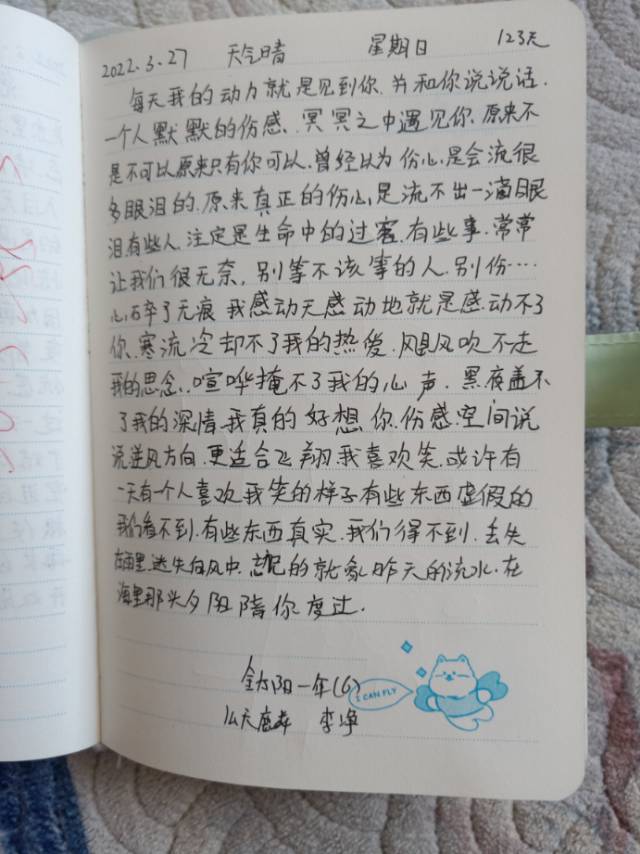 2022.3.27 天气晴 星期日 123天
每天我的动力就是见到你.并和你说说话.
一个人默默的伤感.冥冥之中遇见你.原来不
是不可以原来只有你可以.曾经以为伤心.是会流很
多眼泪的.原来真正的伤心.是流不出一滴眼
泪.有些人.注定是生命中的过客.有些事.常常
让我们很无奈.别等不该等的人.别伤……
心碎了无痕 我感动天感动地就是感动不了
你.寒流冷却不了我的热爱.飓风吹不走
我的思念.喧哗掩不了我的心声.黑夜盖不
了我的深情.我真的好想你.伤感空间说
说逆风方向.更适合飞翔.我喜欢笑.或许有
一天有一个人喜欢我笑的样子有些东西虚假的
我们看不到.有些东西真实.我们得不到.丢失
在雨里.迷失在风中.忘记的就象昨天的流水.在
海里那头夕阳陪你度过.
一年(6)
I CAN FLY
李